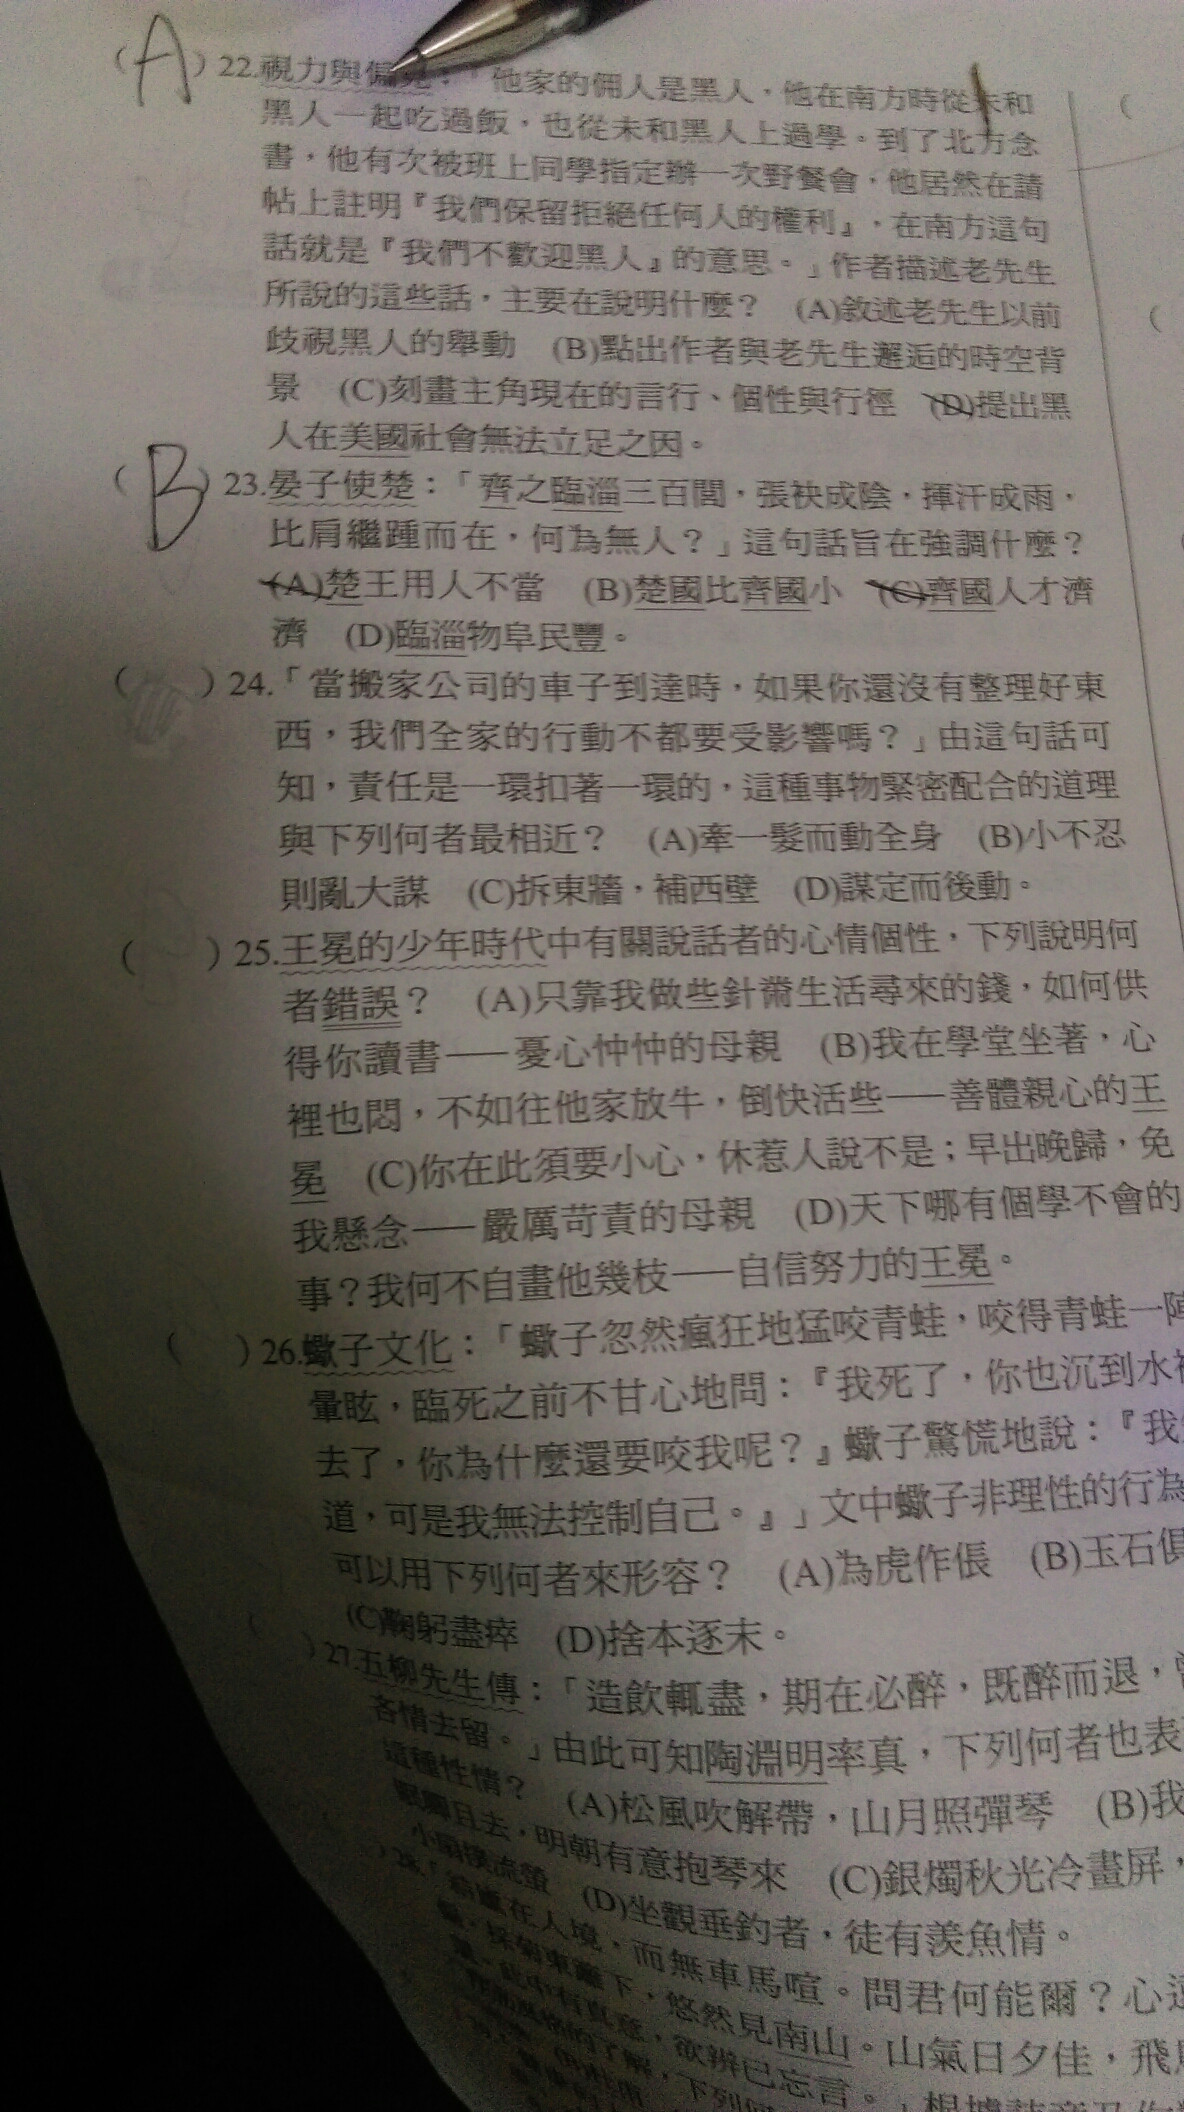 (A)22.視力與偏見：「他家的佣人是黑人，他在南方時從未和
黑人一起吃過飯，也從未和黑人上過學。到了北方念
書，他有次被班上同學指定辦一次野餐會，他居然在請
帖上註明『我們保留拒絕任何人的權利』，在南方這句
話就是『我們不歡迎黑人』的意思。」作者描述老先生
所說的這些話，主要在說明什麼？ (A)敘述老先生以前
歧視黑人的舉動 (B)點出作者與老先生邂逅的時空背
景 (C)刻畫主角現在的言行、個性與行徑 (D)提出黑
人在美國社會無法立足之因。
(B)23.晏子使楚：「齊之臨淄三百閭，張袂成陰，揮汗成雨，
比肩繼踵而在，何為無人？」這句話旨在強調什麼？
(A)楚王用人不當 (B)楚國比齊國小 (C)齊國人才濟
濟 (D)臨淄物阜民豐。
( )24.「當搬家公司的車子到達時，如果你還沒有整理好東
西，我們全家的行動不都要受影響嗎？」由這句話可
知，責任是一環扣著一環的，這種事物緊密配合的道理
與下列何者最相近？ (A)牽一髮而動全身 (B)小不忍
則亂大謀 (C)拆東牆，補西壁 (D)謀定而後動。
( )25.王冕的少年時代中有關說話者的心情個性，下列說明何
者錯誤？ (A)只靠我做些針黹生活尋來的錢，如何供
得你讀書──憂心忡忡的母親 (B)我在學堂坐著，心
裡也悶，不如往他家放牛，倒快活些──善體親心的王
冕 (C)你在此須要小心，休惹人說不是；早出晚歸，免
我懸念──嚴厲苛責的母親 (D)天下哪有個學不會的
事？我何不自畫他幾枝──自信努力的王冕。
( )26.蠍子文化：「蠍子忽然瘋狂地猛咬青蛙，咬得青蛙一陣
暈眩，臨死之前不甘心地問：『我死了，你也沉到水裡
去了，你為什麼還要咬我呢？』蠍子驚慌地說：『我
道，可是我無法控制自己。』」文中蠍子非理性的行為
可以用下列何者來形容？ (A)為虎作倀 (B)玉石俱
(C)鞠躬盡瘁 (D)捨本逐末。
( )27.五柳先生傳：「造飲輒盡，期在必醉，既醉而退，
吝情去留。」由此可知陶淵明率真，下列何者也表
這種性情？ (A)松風吹解帶，山月照彈琴 (B)我
且去，明朝有意抱琴來 (C)銀燭秋光冷畫屏，
小扇撲流螢 (D)坐觀垂釣者，徒有羨魚情。
)28.「結廬在人境，而無車馬喧。問君何能爾？心遠
採菊東籬下，悠然見南山。山氣日夕佳，飛
此中有真意，欲辨已忘言。」根據
的了解，下列何